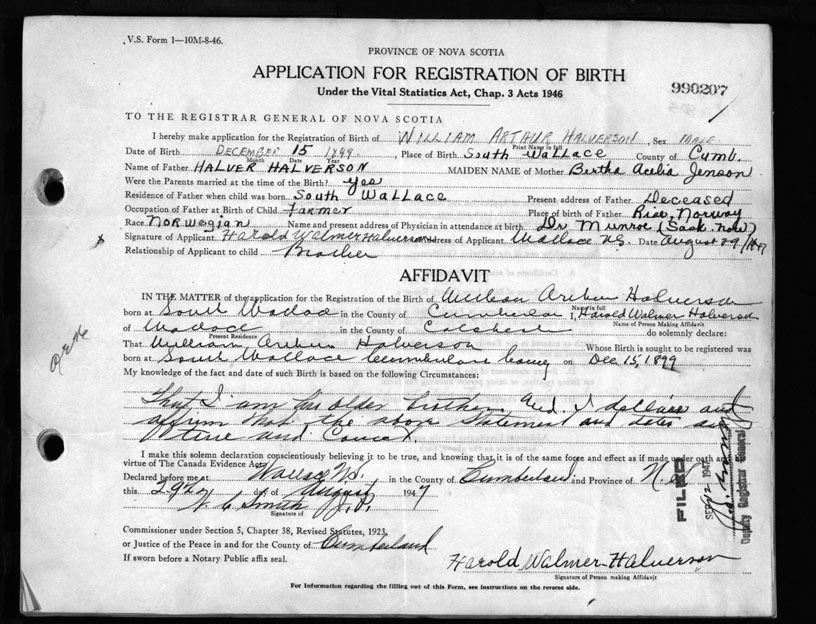 V.S. Form 1—10M-8-46.
PROVINCE OF NOVA SCOTIA
APPLICATION FOR REGISTRATION OF BIRTH
990207
Under the Vital Statistics Act, Chap. 3 Acts 1946
TO THE REGISTRAR GENERAL OF NOVA SCOTIA
I hereby make application for the Registration of Birth of WILLIAM ARTHUR HALVERSON, Sex MALE
Print Name in full
Date of Birth DECEMBER 15 1899, Place of Birth South Wallace County of Cumb.
Month Date Year
Name of Father HALVER HALVERSON MAIDEN NAME of Mother Bertha Jenson
Were the Parents married at the time of Birth? yes
Residence of Father when child was born South Wallace Present address of Father Deceased
Occupation of Father at Birth of Child farmer Place of birth of Father Rise, Norway
Race Norwegian Name and present address of Physician in attendance at birth Dr Munroe (Sask. now)
Signature of Applicant Harold Walmer Halverson Address of Applicant Wallace N.S. Date August 29/1947
Relationship of Applicant to child Brother
x
AFFIDAVIT
IN THE MATTER of the application for the Registration of the Birth of William Arthur Halverson
Name in full
born at South Wallace in the County of Cumberland I, Harold Walmer Halverson
Name of Person Making Affidavit
of Wallace in the County of Colchester do solemnly declare:
Present Residence
That William Arthur Halverson Whose Birth is sought to be registered was
born at South Wallace Cumberland County on Dec 15, 1899
My knowledge of the fact and date of such Birth is based on the following Circumstances:
That I am his older brother. And I declare and
affirm that the above statement and dates are
true and Correct.
I make this solemn declaration conscientiously believing it to be true, and knowing that it is of the same force and effect as if made under oath and
virtue of The Canada Evidence Act.
Declared before me at Wallace N.S. in the County of Cumberland and Province of N.S.
this 29th day of August 1947
Smith J.P.
Signature of
FILED
SEP 1947
Deputy Registrar General
Commissioner under Section 5, Chapter 38, Revised Statutes, 1923,
or Justice of the Peace in and for the County of Cumberland
If sworn before a Notary Public affix seal.
Harold Walmer Halverson
Signature of Person making Affidavit
For Information regarding the filling out of this Form, see instructions on the reverse side.